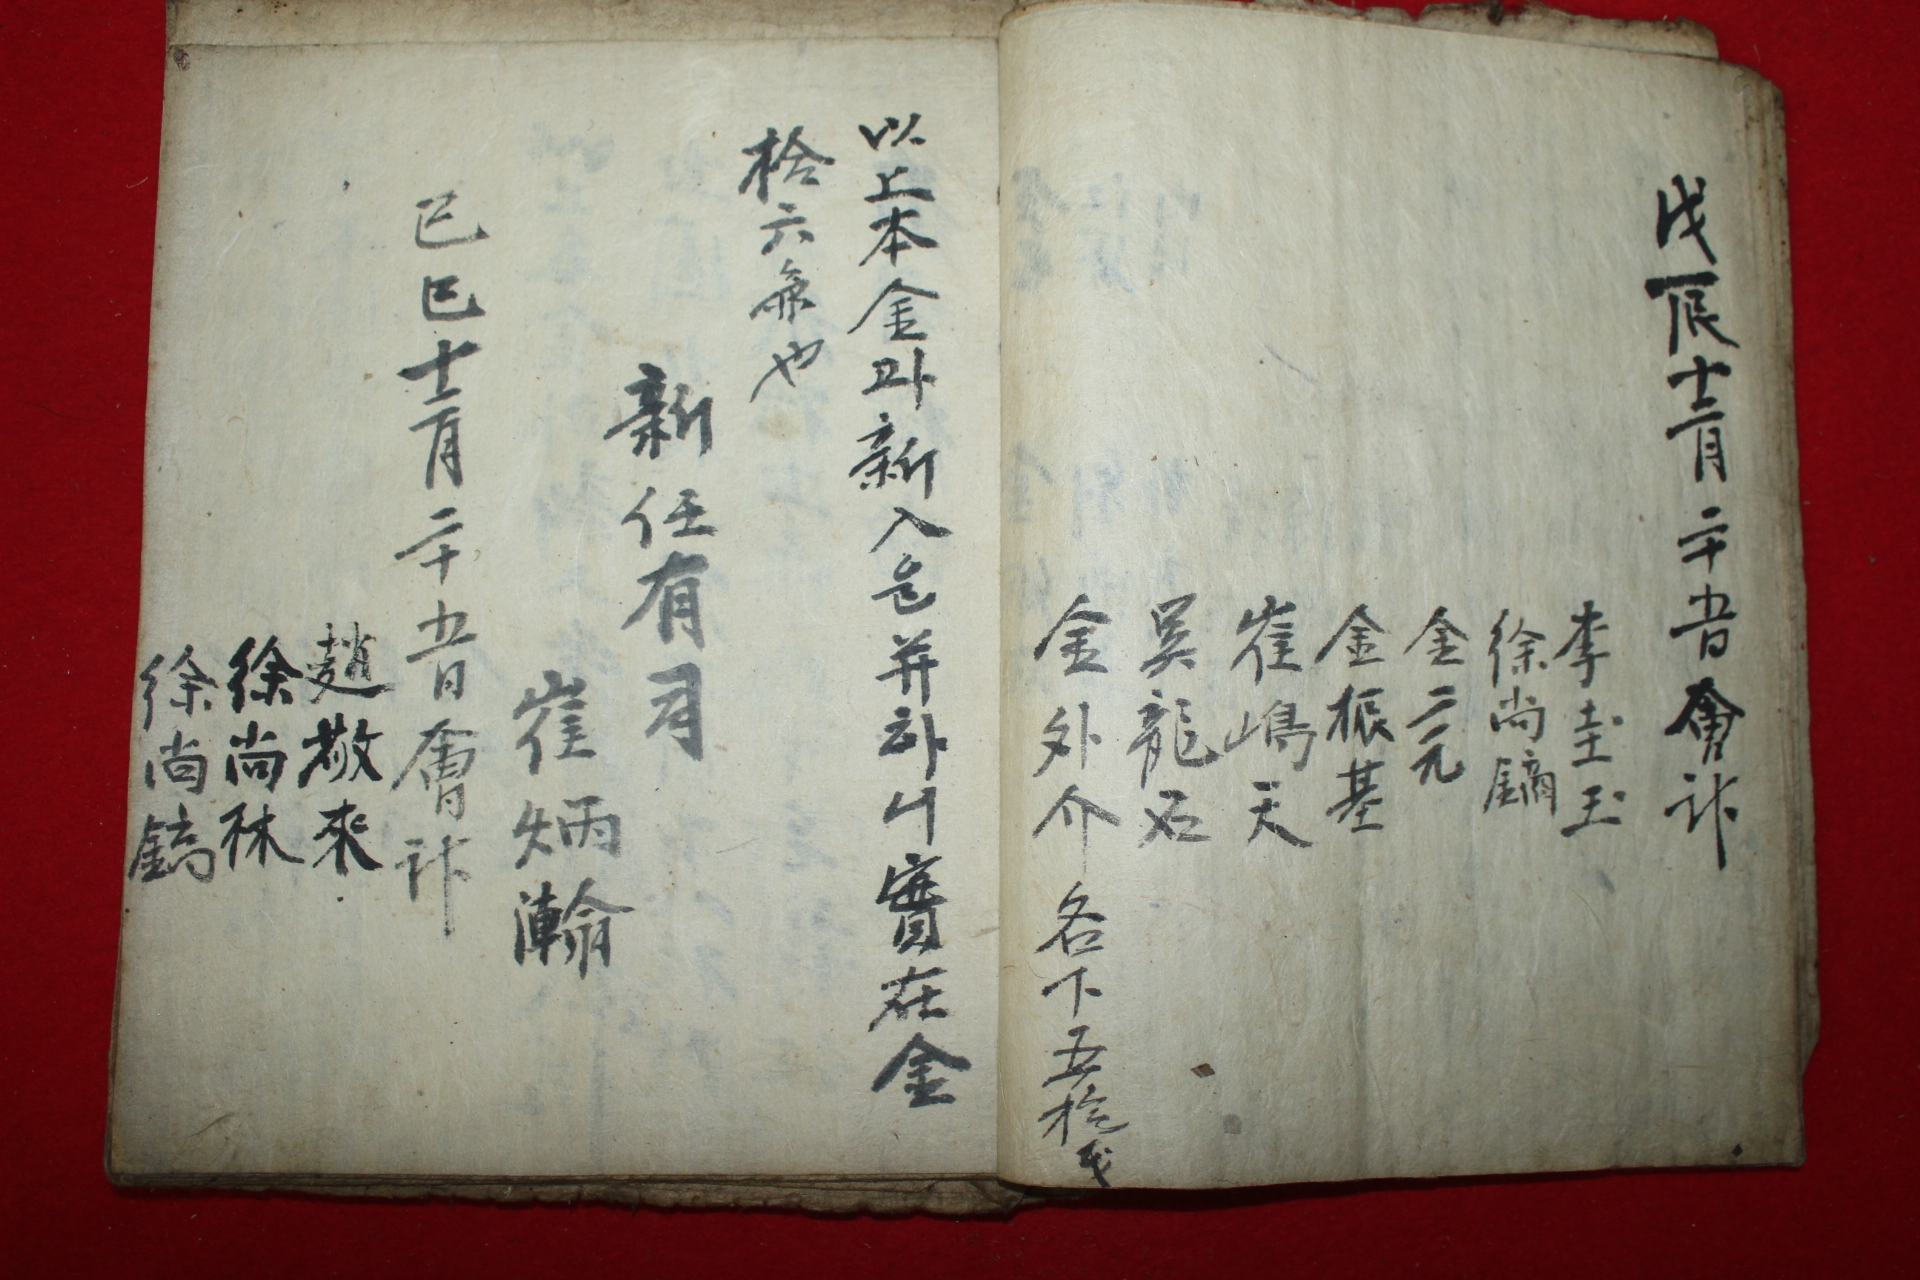 戊辰十二月二十五日會計
李圭玉
徐尚鏑
金元
金振基
崔嶋天
吳龍石
金外介 各下五拾戈
以上本金과新入을并하니實在金
拾六兩也
新任有司
崔炳瀚
己巳十二月二十五日會計
趙敬來
徐尚林
徐尚鎬